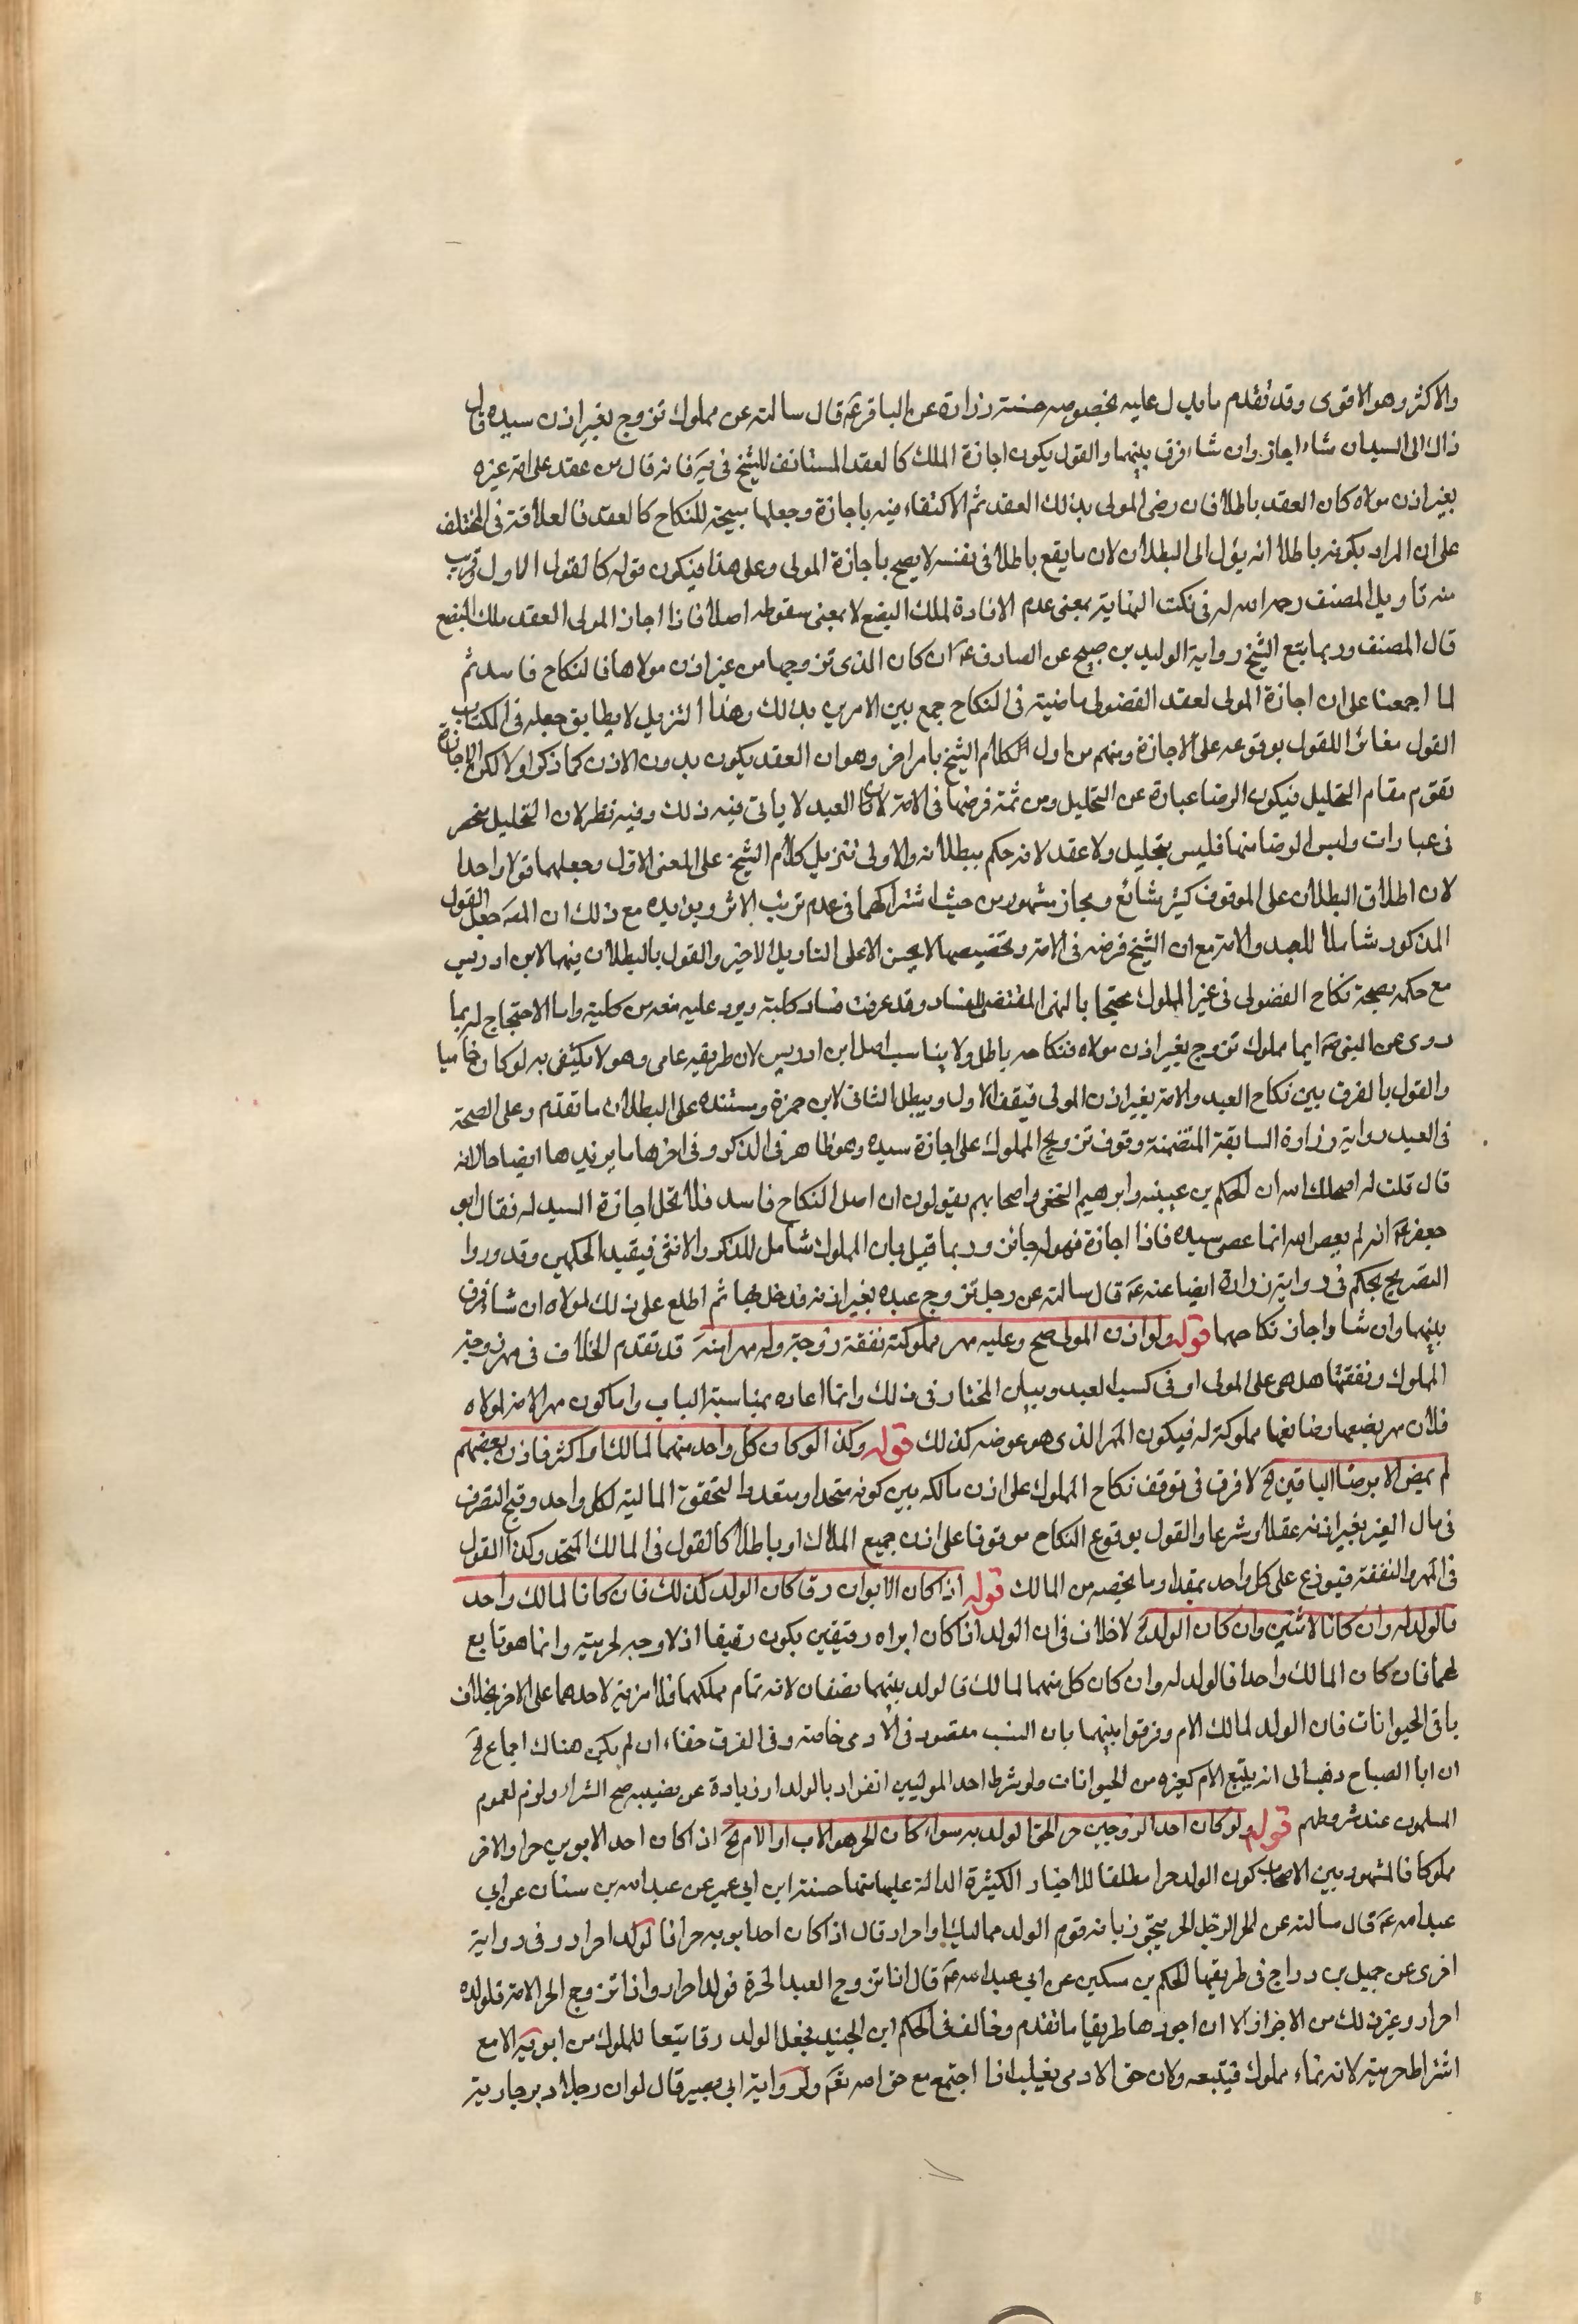 والاكثر وهو الاقوى وقد تقدم ما يدل عليه بخصوصه حسنة زرارة عن الباقر عَ قال سالته عن مملوك تزوج بغير اذن سيده قال
ذاك الى السيد ان شاء اجاز وان شاء فرق بينهما والقول بكون اجازة الملك كالعقد المستانف للشيخ في يه فانه قال من عقد على امة غيره
بغير اذن مولاه كان العقد باطلا فان رضى المولى بذلك العقد ثم الاكتفاء فيه باجازة وجعلها مبيحة للنكاح كالعقد فالعلامة في المختلف
على ان المراد بكونه باطلا انه يؤل الى البطلان لان ما يقع باطلا في نفسه لا يصح باجازة المولى وعلى هذا فيكون قوله كالقول الاول وقريب
منه تاويل المصنف رحمه الله له في نكت النهاية بمعنى عدم الافادة لملك البضع لا بمعنى سقوطه اصلا فاذا اجاز المولى العقد ملك البضع
قال المصنف وربما يتبع الشيخ رواية الوليد بن صبيح عن الصادق عَ ان كان الذى تزوجها من غير اذن مولاها فالنكاح فاسد ثم
لما اجمعنا على ان اجازة المولى لعقد الفضولى ماضية في النكاح جمع بين الامرين بذلك وهذا التنزيل لا يطابق جعله في الكتاب
القول مغائرا للقول بوقوعه على الاجازة ومنهم من اول كلام الشيخ بامر اخر وهو ان العقد يكون بدون الاذن كما ذكر اولا لكن الاجازة
تقوم مقام التحليل فيكون الرضا عبارة عن التحليل ومن ثمة فرضها في الامة لان العبد لا ياتى فيه ذلك وفيه نظر لان التحليل منحصر
في عبارات وليس الرضا منها فليس بتحليل ولا عقد لانه حكم ببطلانه والاولى تنزيل كلام الشيخ على المعنى الاول وجعلهما قولا واحدا
لان اطلاق البطلان على الموقوف كثير شائع ومجاز مشهور من حيث اشتراكهما في عدم ترتب الاثر ويؤيده مع ذلك ان المصَ جعل القول
المذكور شاملا للعبد والامة مع ان الشيخ فرضه في الامة وتخصيصها لا يحسن الا على التاويل الاخير والقول بالبطلان فيهما لابن ادريس
مع حكمه بصحة نكاح الفضولى في غير المملوك محتجا بالنهى المقتضى للفساد وقد عرفت فساد كلية ويرد عليه منعه من كلية واما الاحتجاج له بما
روى عن النبى صَ ايما مملوك تزوج بغير اذن مولاه فنكاحه باطل ولا يناسب اصل ابن ادريس لان طريقه عامى وهو لا يكتفى به لو كان خاصيا
والقول بالفرق بين نكاح العبد والامة بغير اذن المولى فيقف الاول ويبطل الثانى لابن حمزة ومستنده على البطلان ما تقدم وعلى الصحة
في العبد رواية زرارة السابقة المتضمنة وقوف تزويج المملوك على اجازة سيده وهو ظاهر في الذكر وفي اخرها ما يزيدها ايضاحا لانه
قال قلت له اصلحك الله ان الحكم بن عيينه وابرهيم النخعى واصحابهم يقولون ان اصل النكاح فاسد فلا تحل اجازة السيد له فقال ابو
جعفر عَ انه لم يعص الله انما عصى سيده فاذا اجازه فهو له جائز وربما قيل بان المملوك شامل للذكر والانثى فيقيد الحكمين وقد وردوا
التصريح بحكم في رواية زرارة ايضا عنه عَ قال سالته عن رجل تزوج عبده بغير اذنه فدخل بها ثم اطلع على ذلك لمولاه ان شاء فرق
بينهما وان شا واجاز نكاحهما قوله ولو اذن المولى صح وعليه مهر مملوكته نفقة زوجته وله مهر امته قد تقدم الخلاف في مهر زوجة
المملوك ونفقتها هل هى على المولى او في كسب العبد وبيان المختار في ذلك وانما اعاده بمناسبة الباب واما كون مهر الامة لمولاه
فلان مهر بضعها ومنافعها مملوكة له فيكون المهر الذى هو عوضه كذلك قوله وكذا لو كان كل واحد منهما لمالك او اكثر فاذن بعضهم
لم يمض الا برضا الباقين الخ لا فرق في توقف نكاح المملوك على اذن مالكه بين كونه متحدا ومتعددا لتحقق المالية لكل واحد وقبح التصرف
في مال الغير بغير اذنه عقلا وشرعا والقول بوقوع النكاح موقوفا على اذن جميع الملاك او باطلا كالقول في المالك المتحد وكذا القول
في المهر والنفقة فيوزع على كل واحد بمقدار ما يخصه من المالك قوله اذا كان الابوان رق كان الولد كذلك فان كانا لمالك واحد
فالولد له وان كانا لاثنين وان كان الولد الخ لا خلاف في ان الولد اذا كان ابواه رقيقين يكون رقيقا اذ لا وجه لحريته وانما هو تابع
لهما فان كان المالك واحدا فالولد له وان كان كل منهما لمالك فالولد بينهما نصفان لانه تمام ملكهما فلا مزية لاحدهما على الاخر بخلاف
باقى الحيوانات فان الولد لمالك الام وفرقوا بينهما بان النسب مقصود في الادمى خاصة وفي الفرق خفاء ان لم يكن هناك اجماع لح
ان ابا الصباح ذهب الى انه يتبع الام كغيره من الحيوانات ولو شرط احد الموليين انفراد بالولد او زيادة عن نصيبه صح الشراء ولزم لعموم
المسلمون عند شروطهم قوله ولو كان احد الزوجين حر الحق الولد به سواء كان الحر هو الاب او الام الخ اذا كان احد الابوين حرا والاخر
مملوكا فالمشهور بين الاصحاب كون الولد حرا مطلقا للاخبار الكثيرة الدالة عليه منها حسنة ابن ابى عمير عن عبد الله بن سنان عن ابى
عبد الله عَ قال سالته عن الحر الرجل الحر يتزوج بامة قوم الولد مماليك او احرار قال اذا كان احد ابويه حرا فالولد احرار وفي رواية
اخرى عن جميل بن دراج في طريقها الحكم بن مسكين عن ابى عبد الله عَ قال اذا تزوج العبد الحرة فولد احرار واذا تزوج الحر الامة فولده
احرار وغير ذلك من الاخبار الا ان اجودها طريقا ما تقدم وخالف في الحكم ابن الجنيد بجعل الولد رقا يتبعا للمملوك من ابويه الا مع
اشتراط حريته لانه نماء مملوك فيتبعه ولان حق الادمى يغلب اذا اجتمع مع حق الله تعَم ولرواية ابى بصير قال لو ان رجلا دبر جارية